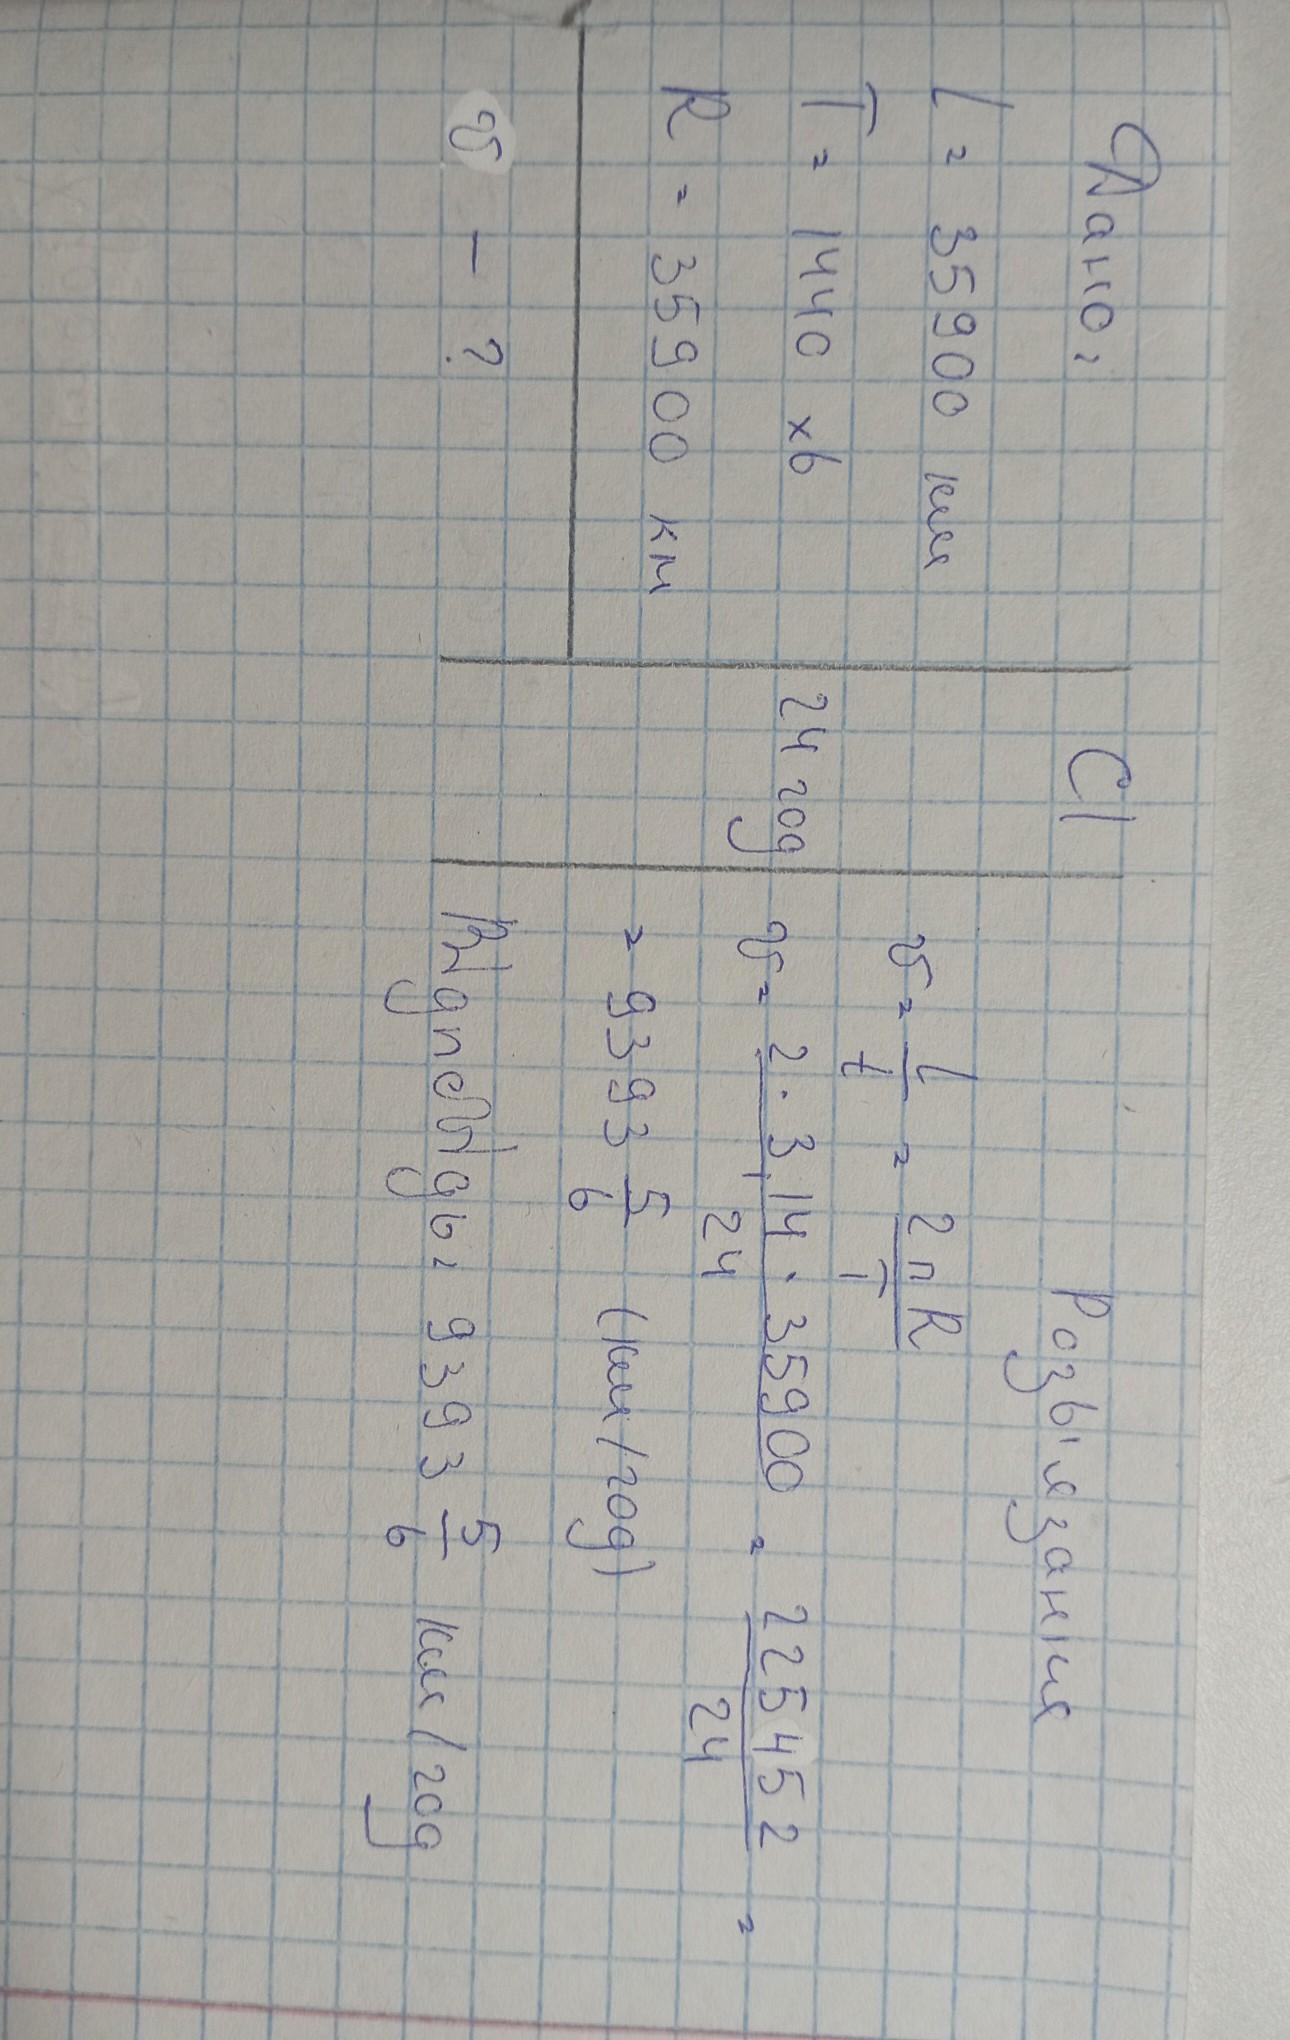 Дано:
l = 35900 км
T = 1440 хв
R = 35900 км
v - ?
СІ
24 год
Розв'язання
v = l/t = 2πR/T
v = 2 · 3,14 · 35900 / 24 = 225452 / 24 =
= 9393 5/6 (км/год)
Відповідь: 9393 5/6 км/год